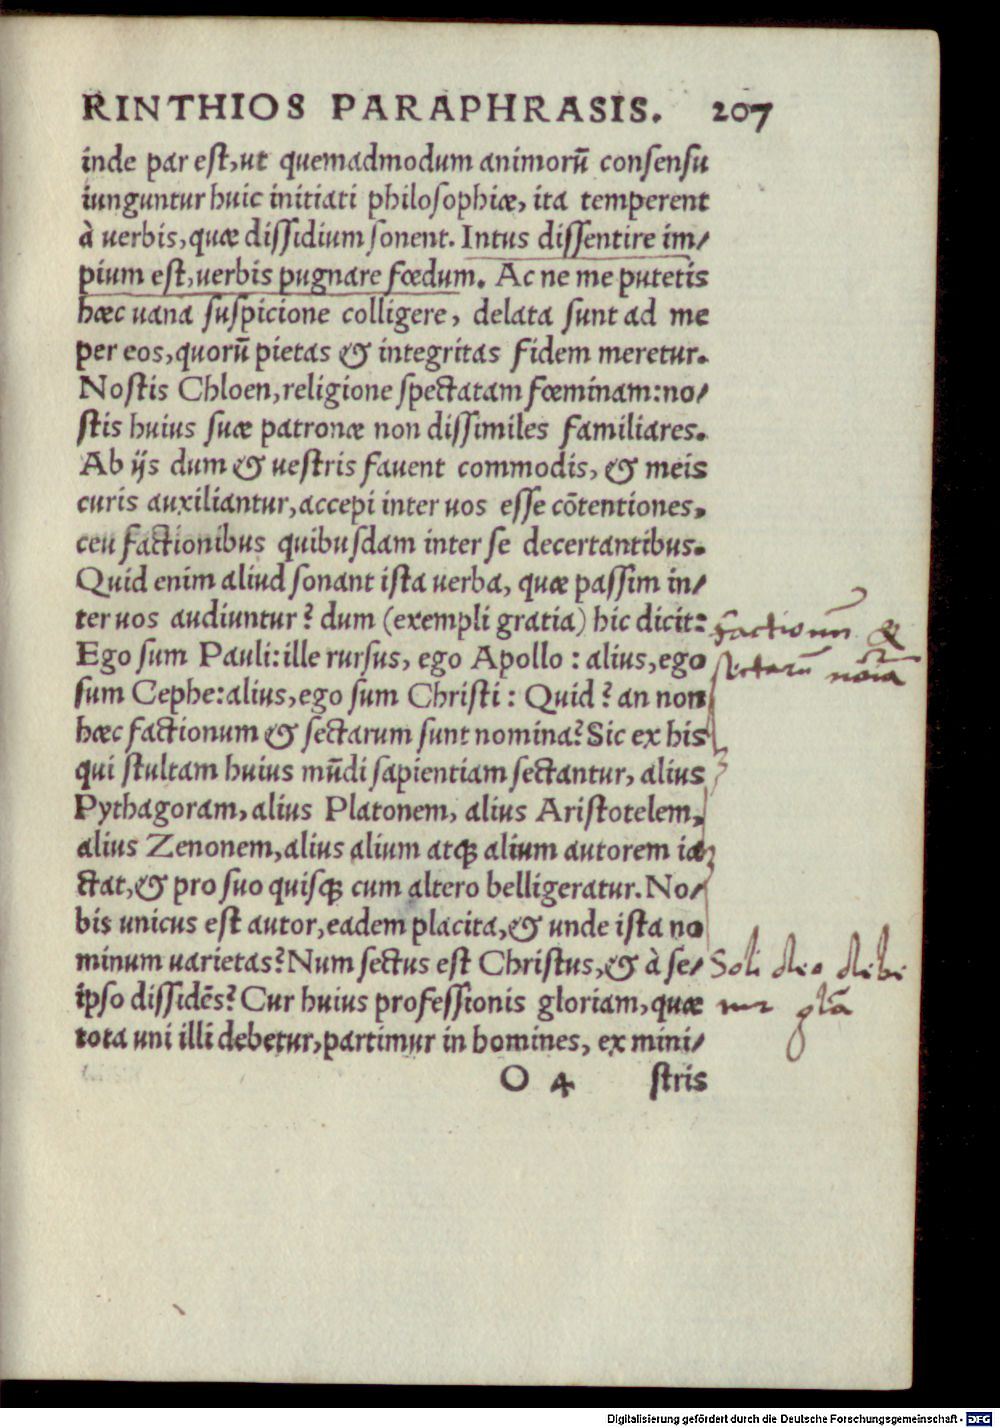 RINTHIOS PARAPHRASIS. 207
inde par est, ut quemadmodum animorū consensu
iunguntur huic initiati philosophiæ, ita temperent
à uerbis, quæ dissidium sonent. Intus dissentire im/
pium est, uerbis pugnare fœdum. Ac ne me putetis
hæc uana suspicione colligere, delata sunt ad me
per eos, quorū pietas & integritas fidem meretur.
Nostis Chloen, religione spectatam fœminam: no/
stis huius suæ patronæ non dissimiles familiares.
Ab ijs dum & uestris fauent commodis, & meis
curis auxiliantur, accepi inter uos esse cōtentiones,
ceu factionibus quibusdam inter se decertantibus.
Quid enim aliud sonant ista uerba, quæ passim in/
ter uos audiuntur? dum (exempli gratia) hic dicit:
Ego sum Pauli: ille rursus, ego Apollo: alius, ego
sum Cephe: alius, ego sum Christi: Quid? an non
hæc factionum & sectarum sunt nomina? Sic ex his
qui stultam huius mūdi sapientiam sectantur, alius
Pythagoram, alius Platonem, alius Aristotelem,
alius Zenonem, alius alium atq; alium autorem ia
ctat, & pro suo quisq; cum altero belligeratur. No/
bis unicus est autor, eadem placita, & unde ista no
minum uarietas? Num sectus est Christus, & à se/
ipso dissidēs? Cur huius professionis gloriam, quæ
tota uni illi debetur, partimur in homines, ex mini/
O 4 stris
factionū &
sectarū noīa
Soli deo debe
tur glā
Digitalisierung gefördert durch die Deutsche Forschungsgemeinschaft - DFG